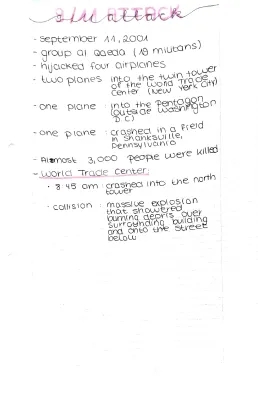 9/11 attack
- september 11, 2001
- group al Qaeda (19 militans)
- hijacked four airplanes
- two planes : into the twin tower
of the World Trade
Center (New York City)
- one plane : into the Pentagon
(outside Washington
D.C)
- one plane : crashed in a field
in Shanksville,
Pennsylvania
- Almost 3,000 people were killed
- World Trade Center:
· 8:45 am : crashed into the north
tower
· collision : massive explosion
that showered
burning debris over
surrounding building
and onto the street
below